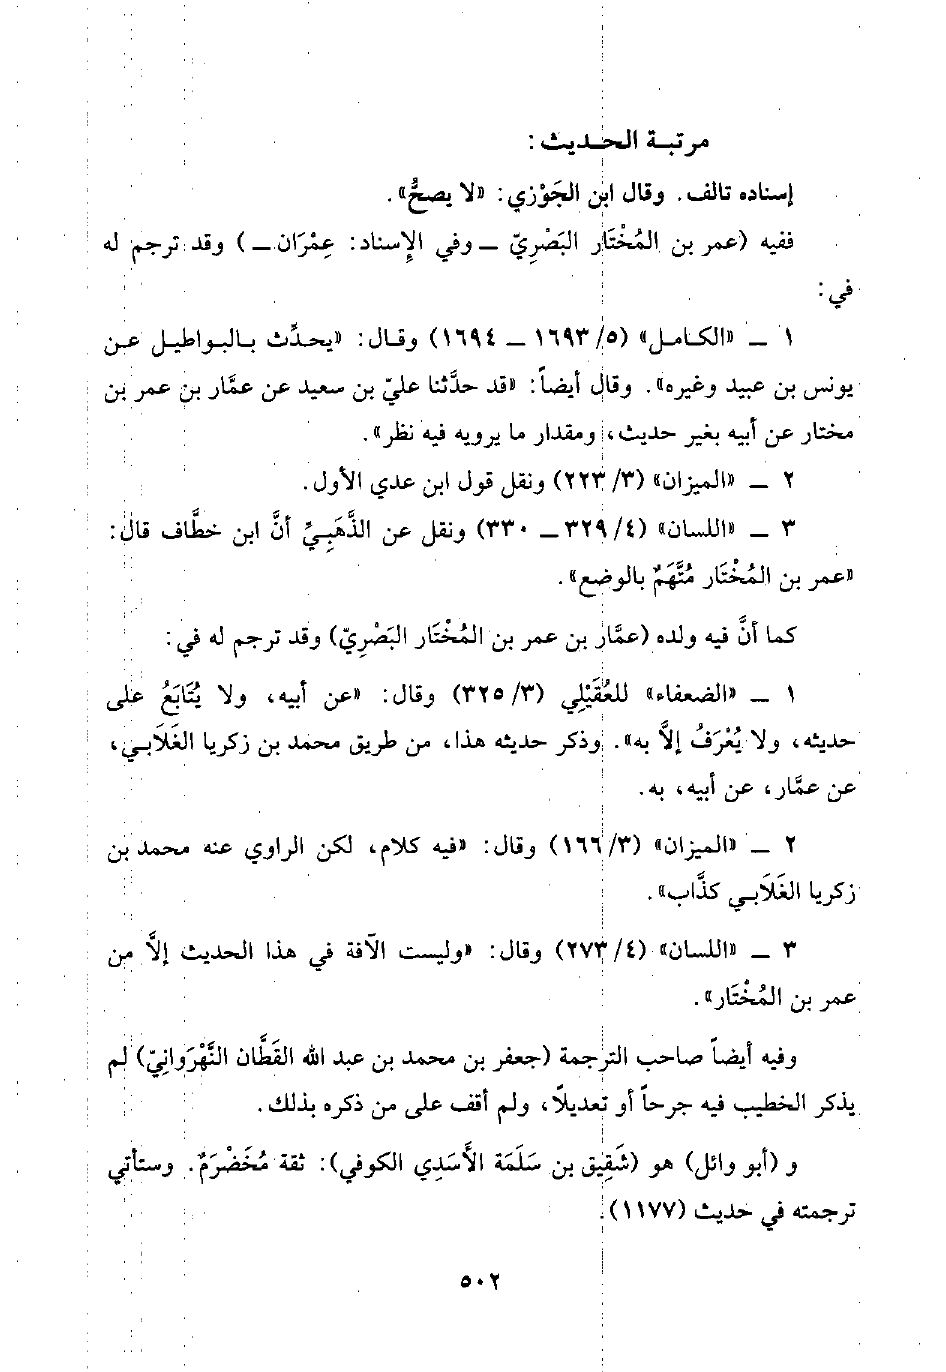 مرتبـة الحـديث :
إسناده تالف. وقال ابن الجَوْزي: «لا يصحُّ».
ففيه (عمر بن المُخْتَار البَصْرِيّ ــ وفي الإسناد: عِمْرَان ــ) وقد ترجم له
في:
١ ــ «الكـامـل» (٥/ ١٦٩٣ ــ ١٦٩٤) وقـال: «يحـدِّث بـالبـواطيـل عـن
يونس بن عبيد وغيره». وقال أيضاً: «قد حدَّثنا عليّ بن سعيد عن عمَّار بن عمر بن
مختار عن أبيه بغير حديث، ومقدار ما يرويه فيه نظر».
٢ ــ «الميزان» (٣/ ٢٢٣) ونقل قول ابن عدي الأول.
٣ ــ «اللسان» (٤/ ٣٢٩ ــ ٣٣٠) ونقل عن الذَّهَبِيِّ أنَّ ابن خطَّاف قال:
«عمر بن المُخْتَار مُتَّهَمٌ بالوضع».
كما أنَّ فيه ولده (عمَّار بن عمر بن المُخْتَار البَصْرِيّ) وقد ترجم له في:
١ ــ «الضعفاء» للعُقَيْلِي (٣/ ٣٢٥) وقال: «عن أبيه، ولا يُتَابَعُ على
حديثه، ولا يُعْرَفُ إلاَّ به». وذكر حديثه هذا، من طريق محمد بن زكريا الغَلَابـي،
عن عمَّار، عن أبيه، به.
٢ ــ «الميزان» (٣/ ١٦٦) وقال: «فيه كلام، لكن الراوي عنه محمد بن
زكريا الغَلَابـي كذَّاب».
٣ ــ «اللسان» (٤/ ٢٧٣) وقال: «وليست الآفة في هذا الحديث إلاَّ من
عمر بن المُخْتَار».
وفيه أيضاً صاحب الترجمة (جعفر بن محمد بن عبد الله القَطَّان النَّهْرَوانِيّ) لم
يذكر الخطيب فيه جرحاً أو تعديلاً، ولم أقف على من ذكره بذلك.
و (أبو وائل) هو (شَقِيق بن سَلَمَة الأَسَدِي الكوفي): ثقة مُخَضْرَمٌ. وستأتي
ترجمته في حديث (١١٧٧).
٥٠٢